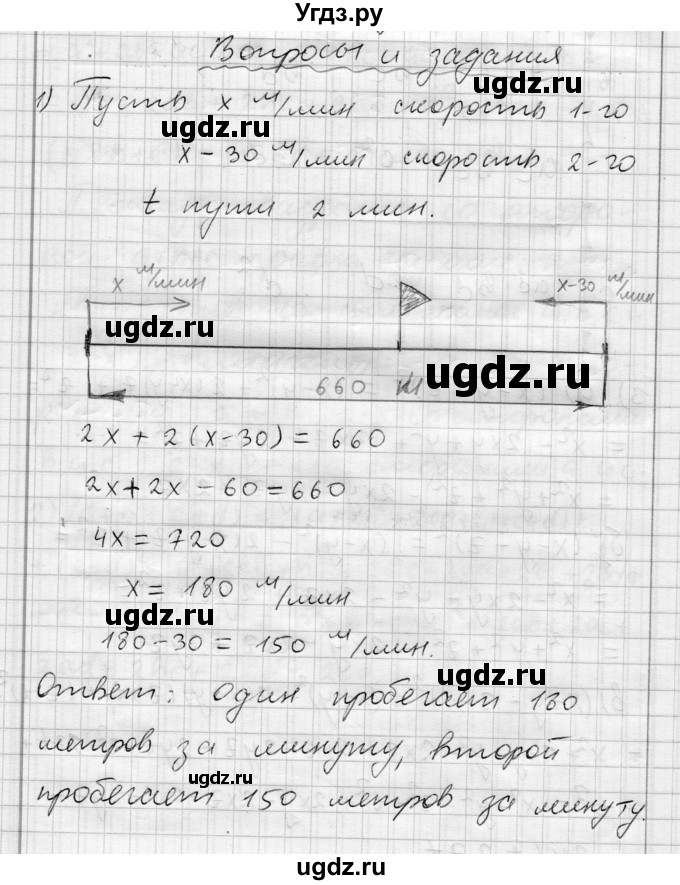 Угдз.ру
Вопросы и задания
1) Пусть x м/мин скорость 1-го
ugdz.ru
x – 30 м/мин скорость 2-го
ugdz.ru
t пути 2 мин.
x м/мин
x-30 м/мин
ugdz.ru
ugdz.ru
660 м
2x + 2(x-30) = 660
2x+2x – 60 = 660
4x = 720
x = 180 м/мин
ugdz.ru
180-30 = 150 м/мин.
ugdz.ru
Ответ: Один пробегает 180
метров за минуту, второй
ugdz.ru
пробегает 150 метров за минуту.
ugdz.ru